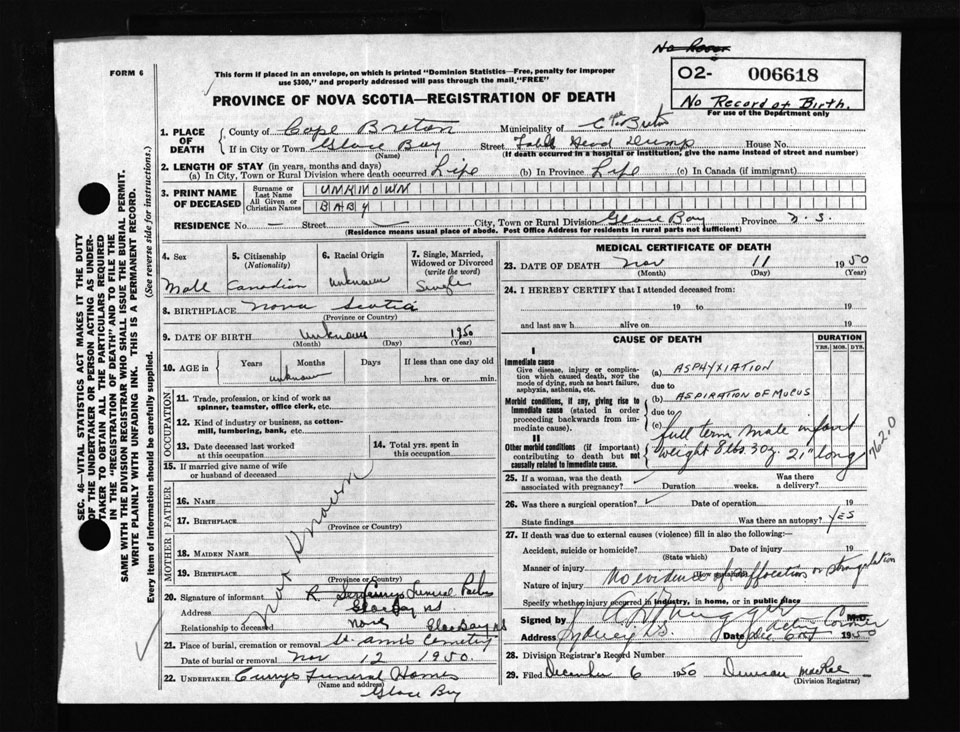 No Room
FORM 6
This form if placed in an envelope, on which is printed "Dominion Statistics—Free, penalty for improper
use $300," and properly addressed will pass through the mail "FREE"
O2- 006618
No Record of Birth.
For use of the Department only
PROVINCE OF NOVA SCOTIA—REGISTRATION OF DEATH
1. PLACE OF DEATH
County of Cape Breton Municipality of Cape Breton
If in City or Town Glace Bay Street Table Head Dump House No.
(Name) (If death occurred in a hospital or institution, give the name instead of street and number)
2. LENGTH OF STAY (in years, months and days)
(a) In City, Town or Rural Division where death occurred Life (b) In Province Life (c) In Canada (if immigrant)
3. PRINT NAME OF DECEASED
Surname or Last Name UNKNOWN
All Given or Christian Names BABY
RESIDENCE No. — Street City, Town or Rural Division Glace Bay Province N.S.
(Residence means usual place of abode. Post Office Address for residents in rural parts not sufficient)
4. Sex Male
5. Citizenship (Nationality) Canadian
6. Racial Origin unknown
7. Single, Married, Widowed or Divorced (write the word) Single
8. BIRTHPLACE Nova Scotia
(Province or Country)
9. DATE OF BIRTH unknown 1950
(Month) (Day) (Year)
10. AGE in Years Months Days If less than one day old
unknown hrs. or min.
OCCUPATION
11. Trade, profession, or kind of work as spinner, teamster, office clerk, etc.
12. Kind of industry or business, as cotton-mill, lumbering, bank, etc.
13. Date deceased last worked at this occupation
14. Total yrs. spent in this occupation
15. If married give name of wife or husband of deceased
FATHER
16. NAME
17. BIRTHPLACE
(Province or Country)
MOTHER
18. MAIDEN NAME
19. BIRTHPLACE
(Province or Country)
Not Known
20. Signature of informant R. Curry's Funeral
Address Glace Bay NS
Relationship to deceased None Glace Bay NS
21. Place of burial, cremation or removal St. Anns Cemetery
Date of burial or removal Nov 12 1950.
22. UNDERTAKER Currys Funeral Homes
(Name and address)
Glace Bay
MEDICAL CERTIFICATE OF DEATH
23. DATE OF DEATH Nov 11 1950
(Month) (Day) (Year)
24. I HEREBY CERTIFY that I attended deceased from:
19 to 19
and last saw h alive on 19
CAUSE OF DEATH
DURATION
YRS. MOS. DYS.
I
Immediate cause
Give disease, injury or complication which caused death, NOT the mode of dying, such as heart failure, asphyxia, asthenia, etc.
(a) ASPHYXIATION
due to
Morbid conditions, if any, giving rise to immediate cause (stated in order proceeding backwards from immediate cause).
(b) ASPIRATION OF MUCUS
due to
(c) full term male infant
weight 8 lbs. 3 oz. 21" long
762.0
II
Other morbid conditions (if important) contributing to death but not causally related to immediate cause.
25. If a woman, was the death associated with pregnancy? Duration weeks. Was there a delivery?
26. Was there a surgical operation? Date of operation 19
State findings Was there an autopsy? YES
27. If death was due to external causes (violence) fill in also the following:—
Accident, suicide or homicide? Date of injury 19
(State which)
Manner of injury
Nature of injury No evidence of suffocation or strangulation
Specify whether injury occurred in industry, in home, or in public place
Signed by M.D.
Acting Coroner
Address Sydney N.S. Date Dec 6th 1950
28. Division Registrar's Record Number
29. Filed December 6 1950 Duncan MacRae
(Division Registrar)
SEC. 46—VITAL STATISTICS ACT MAKES IT THE DUTY
OF THE UNDERTAKER OR PERSON ACTING AS UNDER-
TAKER TO OBTAIN ALL THE PARTICULARS REQUIRED
IN THE "REGISTRATION OF DEATH" AND TO FILE THE
SAME WITH THE DIVISION REGISTRAR WHO SHALL ISSUE THE BURIAL PERMIT.
WRITE PLAINLY WITH UNFADING INK. THIS IS A PERMANENT RECORD.
Every item of information should be carefully supplied. (See reverse side for instructions).